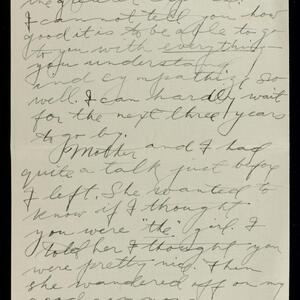 I can not tell you how
good it is to be able to go
to you with everything
you understand
and sympathize so
well. I can hardly wait
for the next three years
to go by.
Mother and I had
quite a talk just before
I left. She wanted to
know if I thought
you were "the" girl. I
told her I thought you
were pretty nice. Then
she wandered off on my